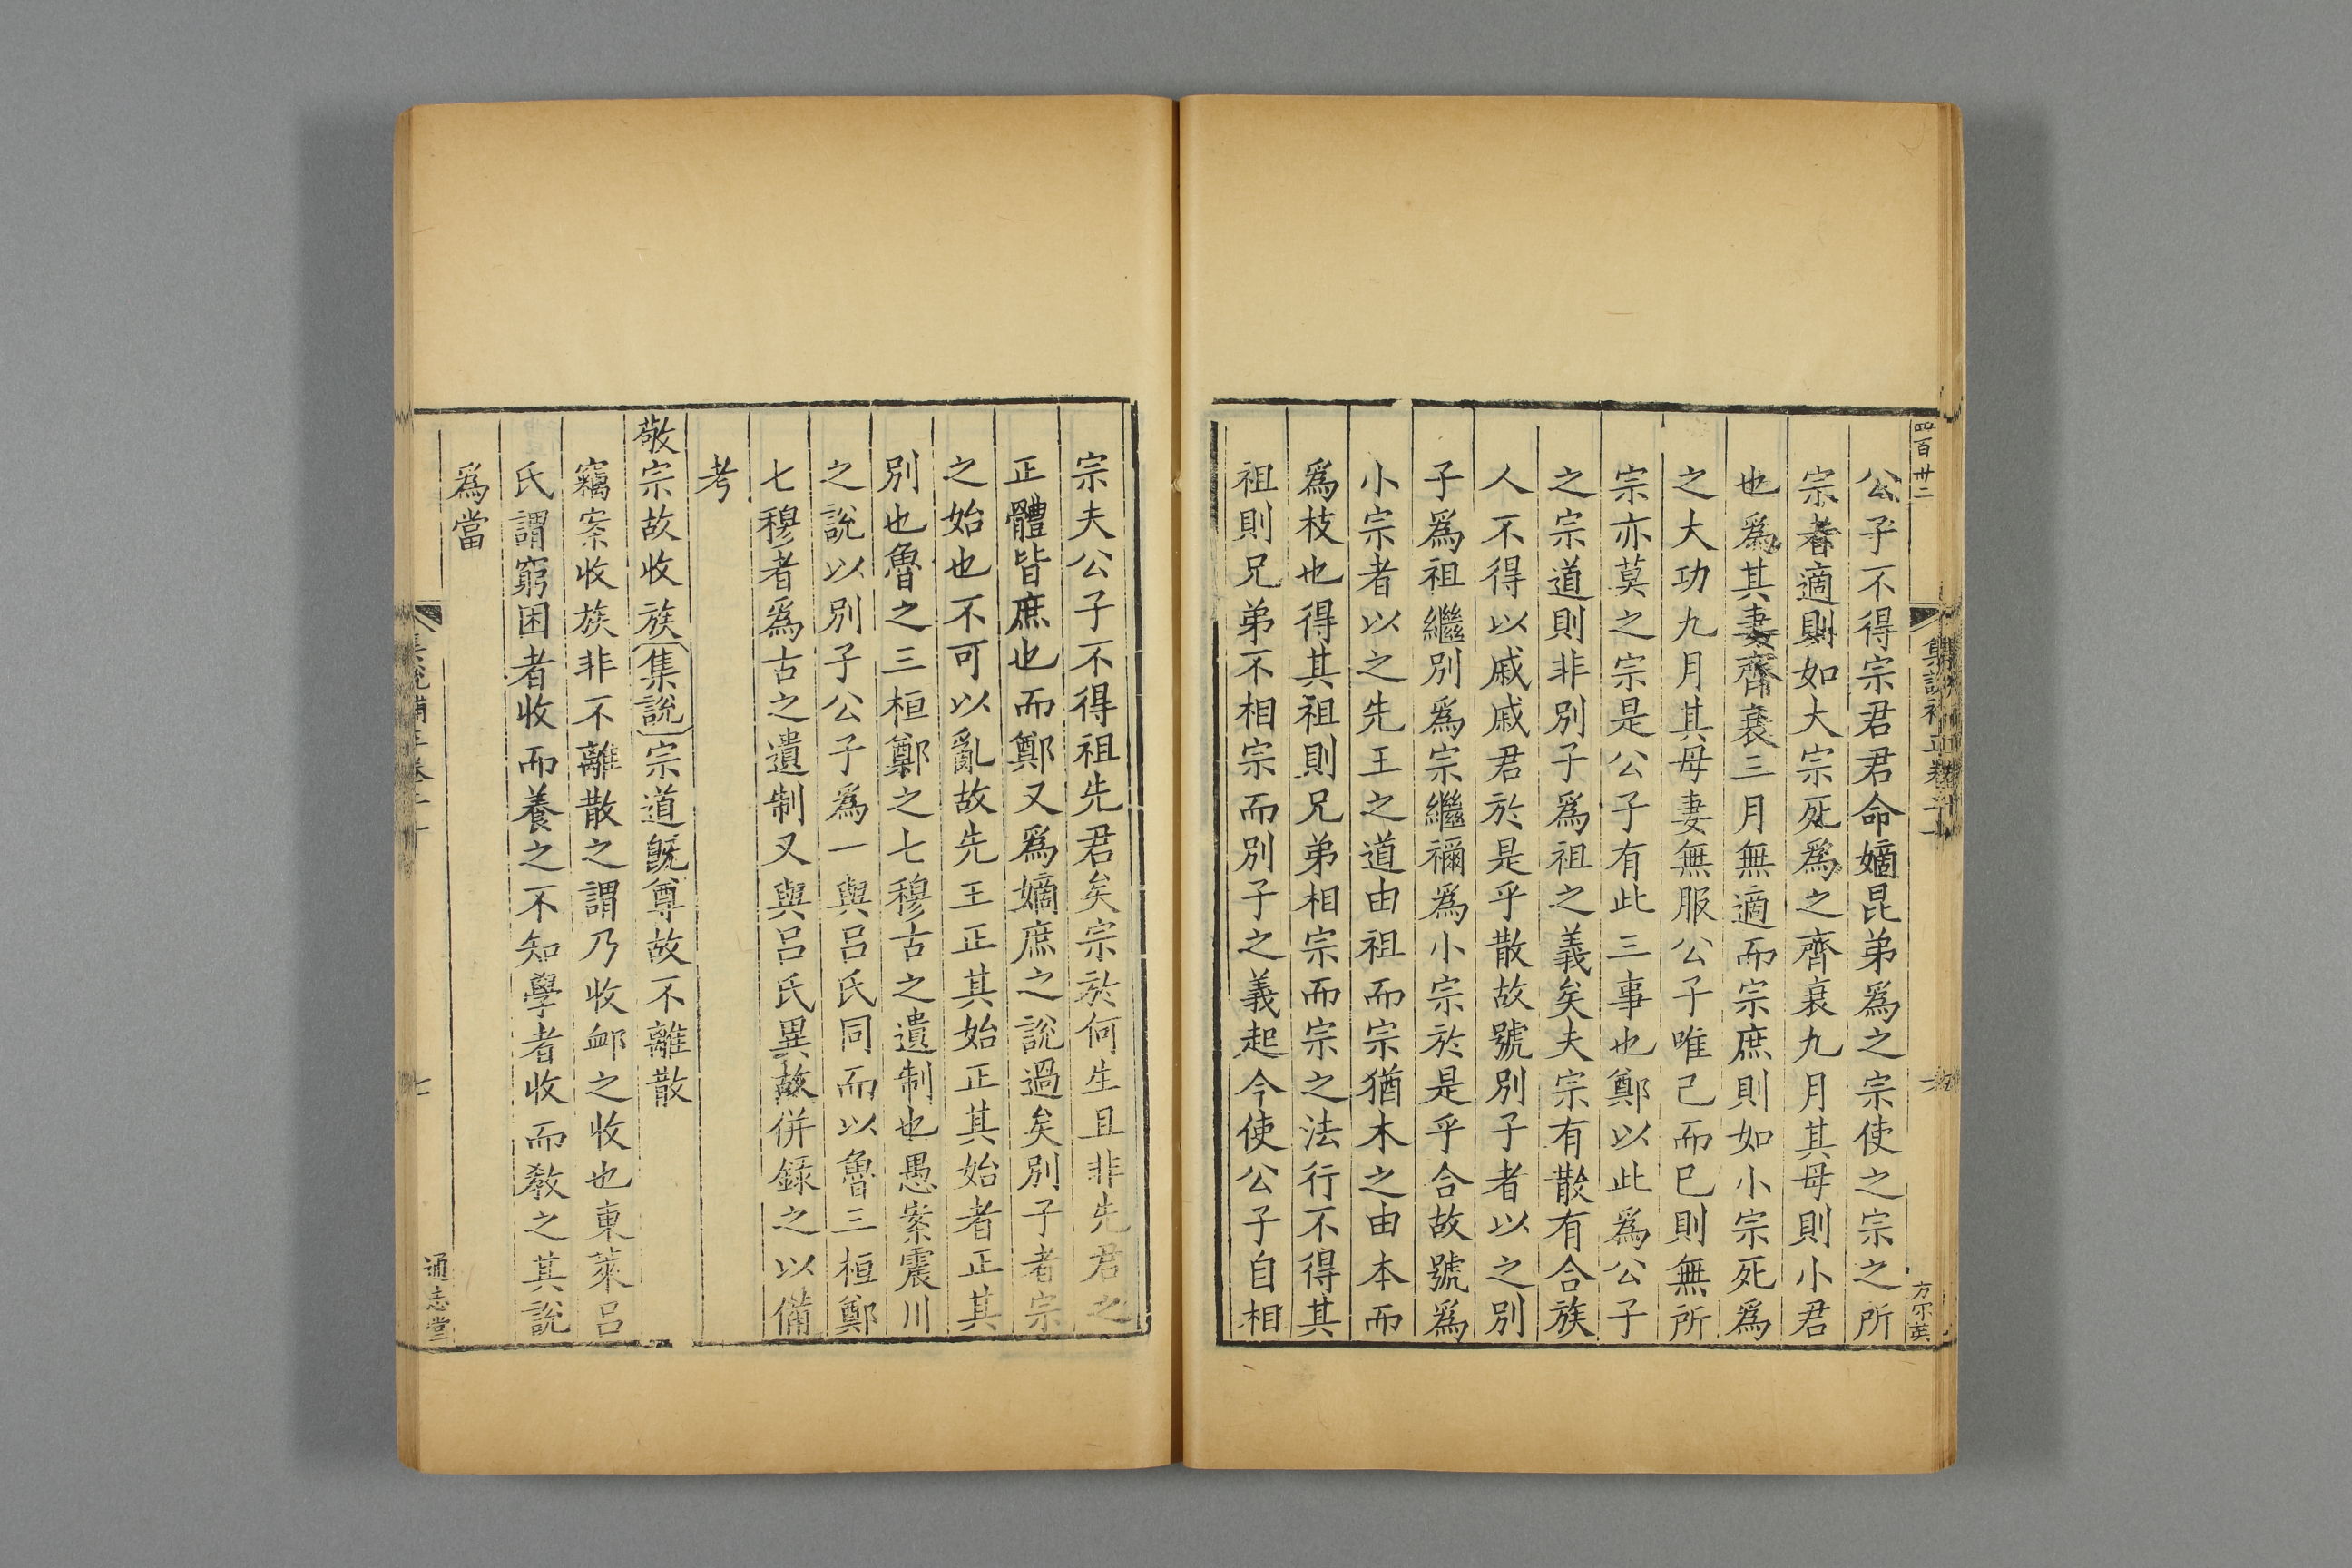 四百卅二
公子不得宗君君命嫡昆弟爲之宗使之宗之所
宗者適則如大宗死爲之齊衰九月其母則小君
也爲其妻齊衰三月無適而宗庶則如小宗死爲
之大功九月其母妻無服公子唯己而已則無所
宗亦莫之宗是公子有此三事也鄭以此爲公子
之宗道則非別子爲祖之義矣夫宗有散有合族
人不得以戚戚君於是乎散故號別子者以之別
子爲祖繼別爲宗繼禰爲小宗於是乎合故號爲
小宗者以之先王之道由祖而宗猶木之由本而
爲枝也得其祖則兄弟相宗而宗之法行不得其
祖則兄弟不相宗而別子之義起今使公子自相
宗夫公子不得祖先君矣宗於何生且非先君之
正體皆庶也而鄭又爲嫡庶之說過矣別子者宗
之始也不可以亂故先王正其始正其始者正其
別也魯之三桓鄭之七穆古之遺制也愚案震川
之說以別子公子爲一與呂氏同而以魯三桓鄭
七穆者爲古之遺制又與呂氏異故併録之以備
考
敬宗故收族集說宗道旣尊故不離散
竊案收族非不離散之謂乃收衈之收也東萊呂
氏謂窮困者收而養之不知學者收而敎之其說
爲當
通志堂